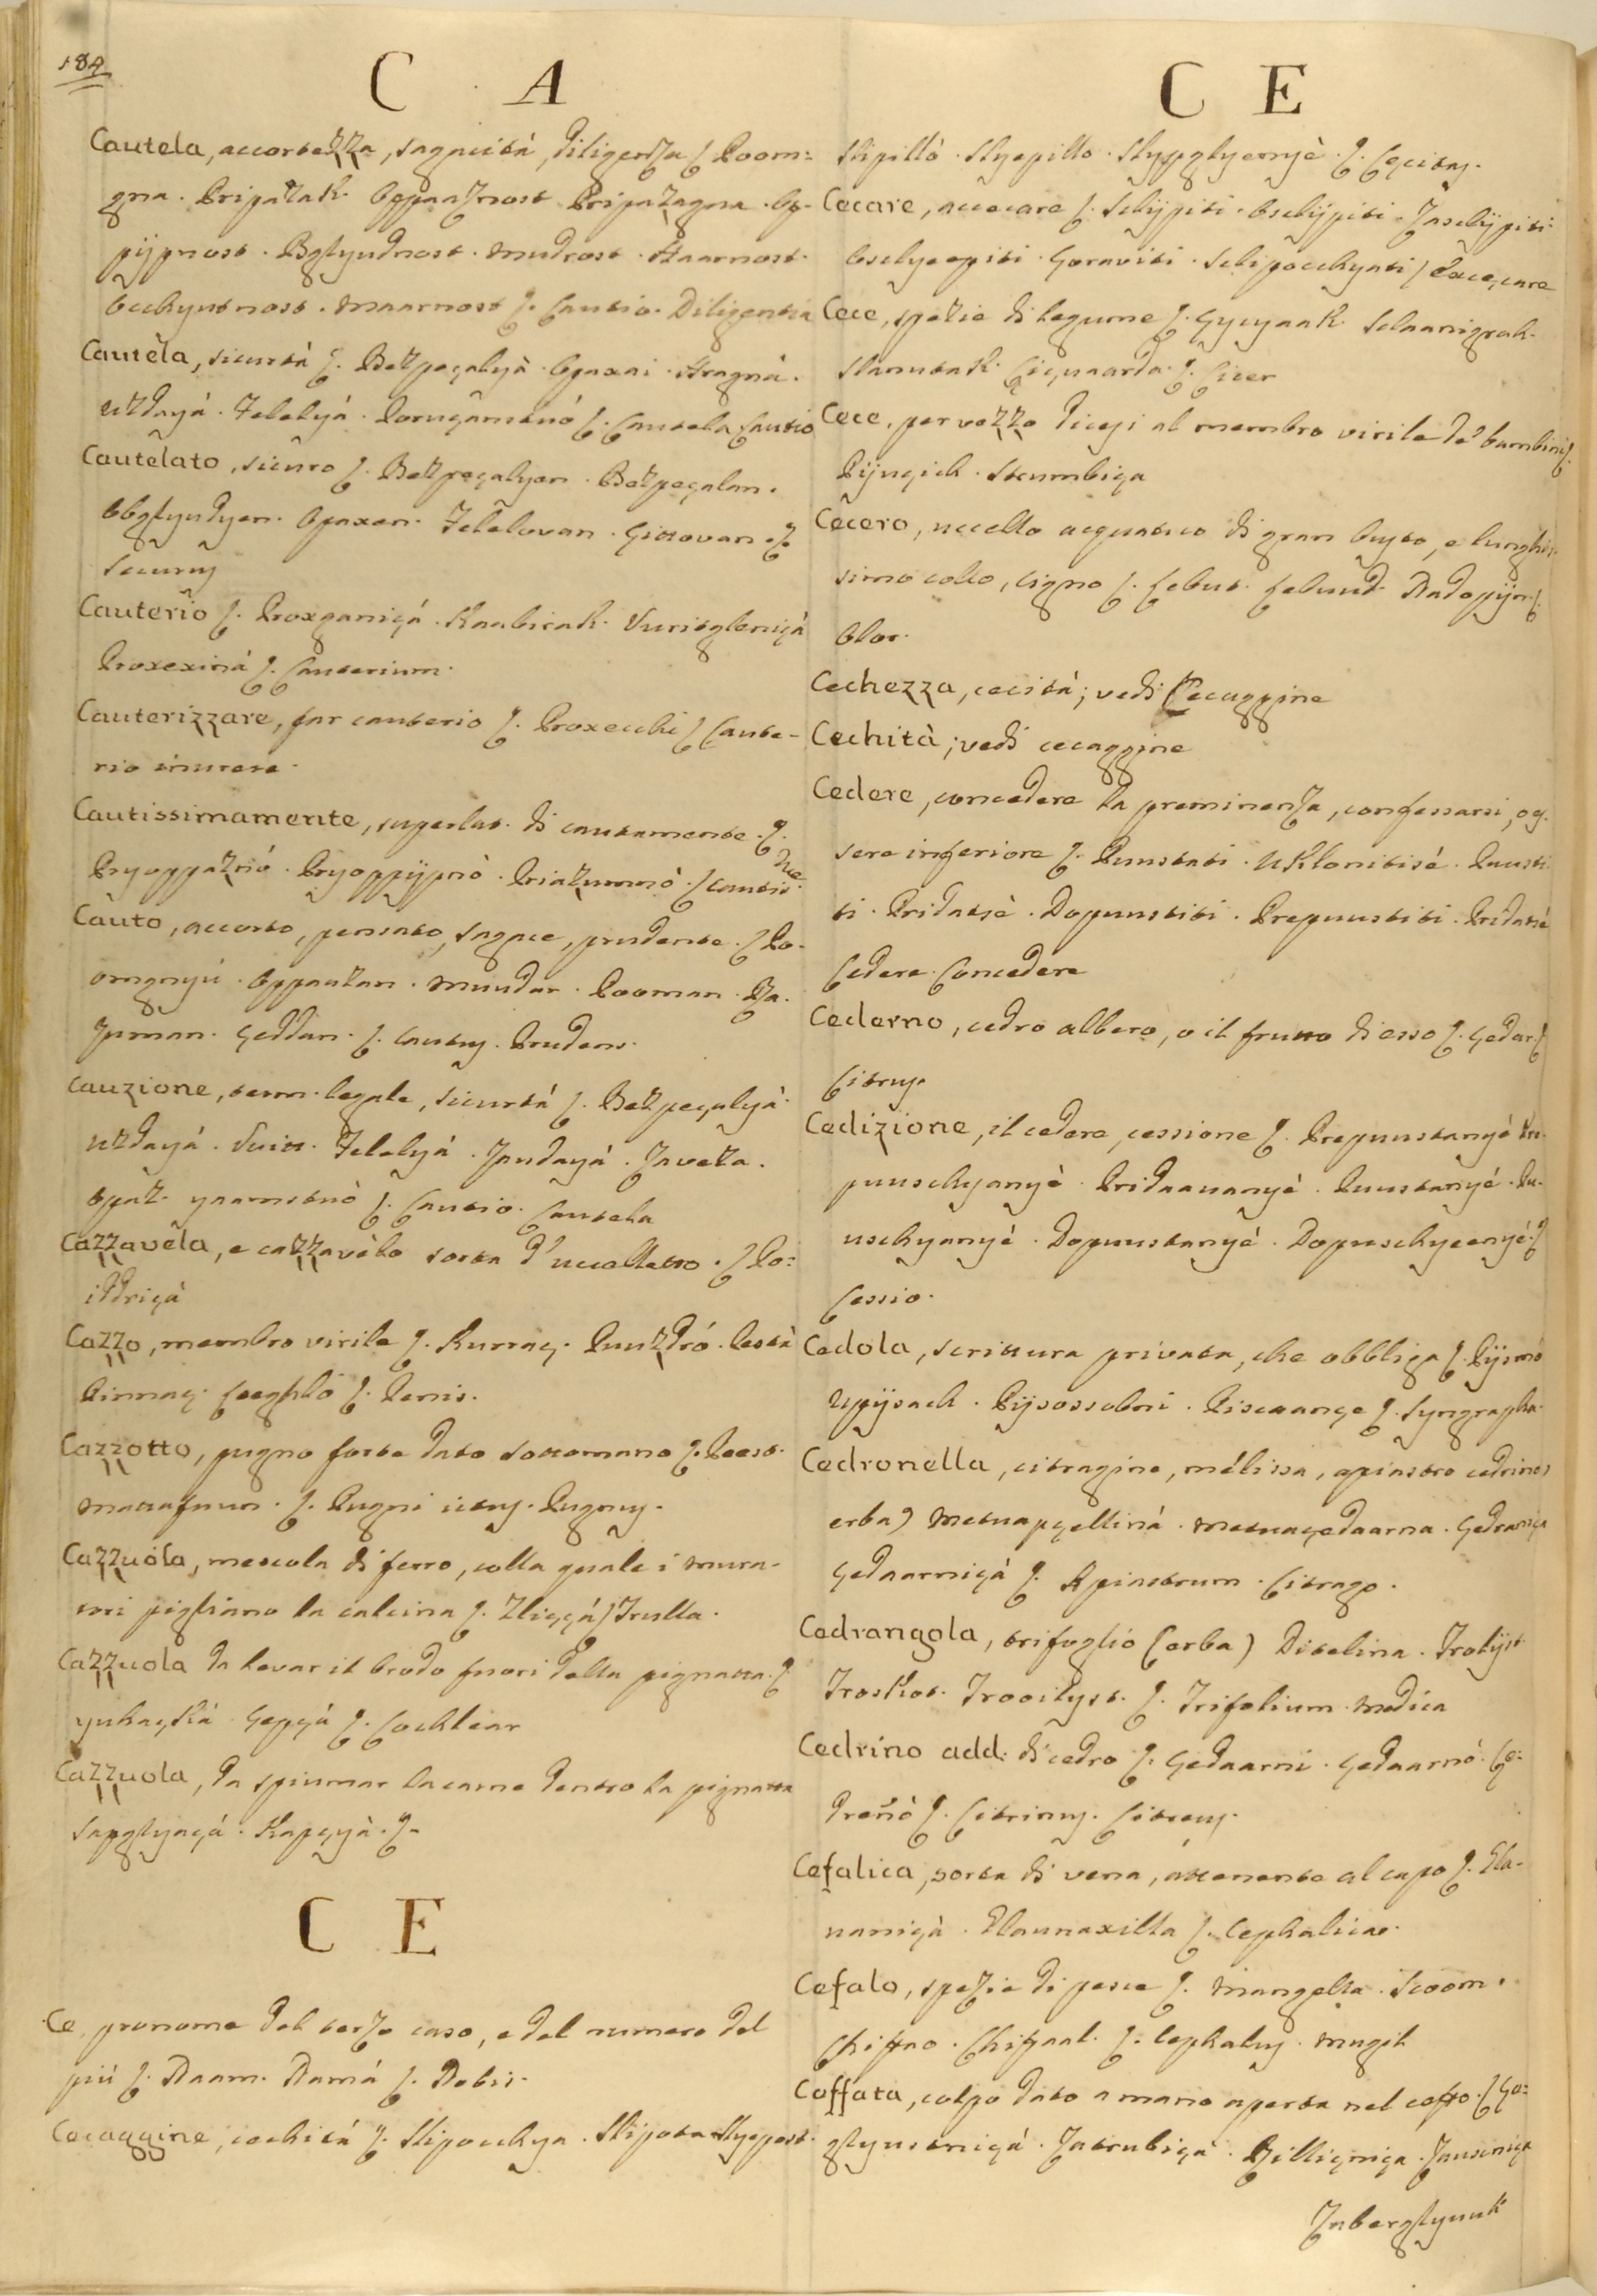 184
C A
Cautela, accortezza, sagacità, diligenza ſ. Poom=
gna. Pripazak. Oppaaznost Pripazagna. Op-
pijpnost. Bglyudnost. Mudrost. Staarnost.
Occhyutnost. Maarnost ſ. Cautio. Diligentia
Cautela, sicurtà ſ. Bezpeçalyà. Opaxai. Stragnà.
Uzdayá. Telelyá. Poruçamstuó ſ. Cautela Cautio
Cautelato, sicuro ſ. Bezpeçalyen. Bezpeçalan.
Obglyudyen. Opaxen. Telelovan. Gittovan ſ.
Securus
Cauterio ſ. Proxganiçá. Kaabicak. Vuritgleniçà
Proxexinà ſ. Cauterium.
Cauterizzare, far cauterio ſ. Proxecchi ſ Caute-
rio inurere.
Cautissimamente, superlat. di cautamente. ſ.
Pryoppaznó. Pryoppijpnò. Priazumnò. ſ cautis.e
Cauto, accorto, pensato, sagace, prudente. ſ Po-
omgnyú. Oppautan. Muudar. Pooman. Ra-
zuman. Geddan. ſ. Cautus. Prudens.
Cauzione, term. legale, sicurtá ſ. Bezpeçalyà.
Uzdayá. Telelyá. Zaudayá. Zaveza.
ſ. Cautio. Cautela
Cazzavela, e cazzavèlo sorta d'uccelletto. ſ Po=
iddriçà
Cazzo, membro virile ſ. Kurraç. Puuzdró.
ſ. Penis.
Cazzotto, pugno forte dato sottomano ſ. Peest.
ſ. Pugni ictus. Pugnus.
Cazzuòla, mescola di ferro, colla quale i mura-
tori pigliano la calcina ſ. Zliççá ſ Trulla.
Cazzuola da levar il brodo fuori della pignatta. ſ
ſ. Cochlear
Cazzuola, da spiumar la carne dentro la pignatta
Kapçyà. ſ.
C E
Ce pronome del terzo caso, e del numero del
più ſ. Naam. Namá ſ. Nobis.
Cecaggine, cechità ſ. Slipocchya. Slipota Slyepost.
C E
Slipillò. Slyepillo. Slypglyennyè. ſ. Ceçitas.
Cecare, acecare ſ. Sclijpiti. Osclijpiti. Zasclijpiti
Osclyeepiti. Goraviti. Sclipocchyati ſ Excecare
Cece, spezie di legume ſ. Gyçyaak. Sclaanigrah.
Slanutak. Çiçuaarda. ſ. Cicer
Cece, per vezzo dicesi al membro virile de' bambini ſ.
Pijuçich. Stumbiça
Cecero, uccello acquatico di gran busto, e lunghis-
simo collo, cigno ſ. Lebut. Labuud. ſ.
Olor.
Cechezza, cecità; vedi Cecaggine
Cechità; vedi cecaggine
Cedere, concedere la preminenza, confessarsi, es-
sere inferiore ſ. Puustati. Uklonitisè. Puusti-
ti. Pridatsè. Dopuustiti. Prepuustiti. Pridatsé
Cedere. Concedere
Cederno, cedro albero, o il frutto di esso ſ. Gedar ſ
Citrus
Cedizione, il cedere, cessione ſ. Prepuustanyé Pre-
puuschyanyé. Pridaavanyé. Puustanyé. Pu-
uschyanyé. Dopuustanyé. Dopuschyeenyé. ſ
Cessio.
Cedola, scrittura privata, che obbliga ſ. Pijsmó
Upijsach. Pijsossobni. Piscaançe ſ. Syngrapha.
Cedronella, citragine, mélissa, apiastro cedrino (
erba) Metuapçellinà. Metuaçedaarna. Gedraniça
Gedaarniçà ſ. Apiastrum. Citrago.
Cedrangola, trifoglio (erba) Ditelina. Trolijst
Troskot. Trooilyst. ſ. Trifolium. Medica
Cedrino add: di cedro ſ. Gedaarni. Gedaarnò. Ge=
dreñò ſ. Citrinus. Citreus.
Cefalica, sorta di vena, attenente al capo ſ. Gla-
uaniçà. Glaunaxilla ſ. Cephalicae.
Cefalo, spezie di pesce ſ. Mangella. Scoom.
Chiffao. Chifaal. ſ. Cephalus. Mugil
Ceffata, colpo dato a mano aperta nel ceffo. ſ Ga=
glyustniçá. Zatrubiçà. Zauscniça
Zabergtyuuk